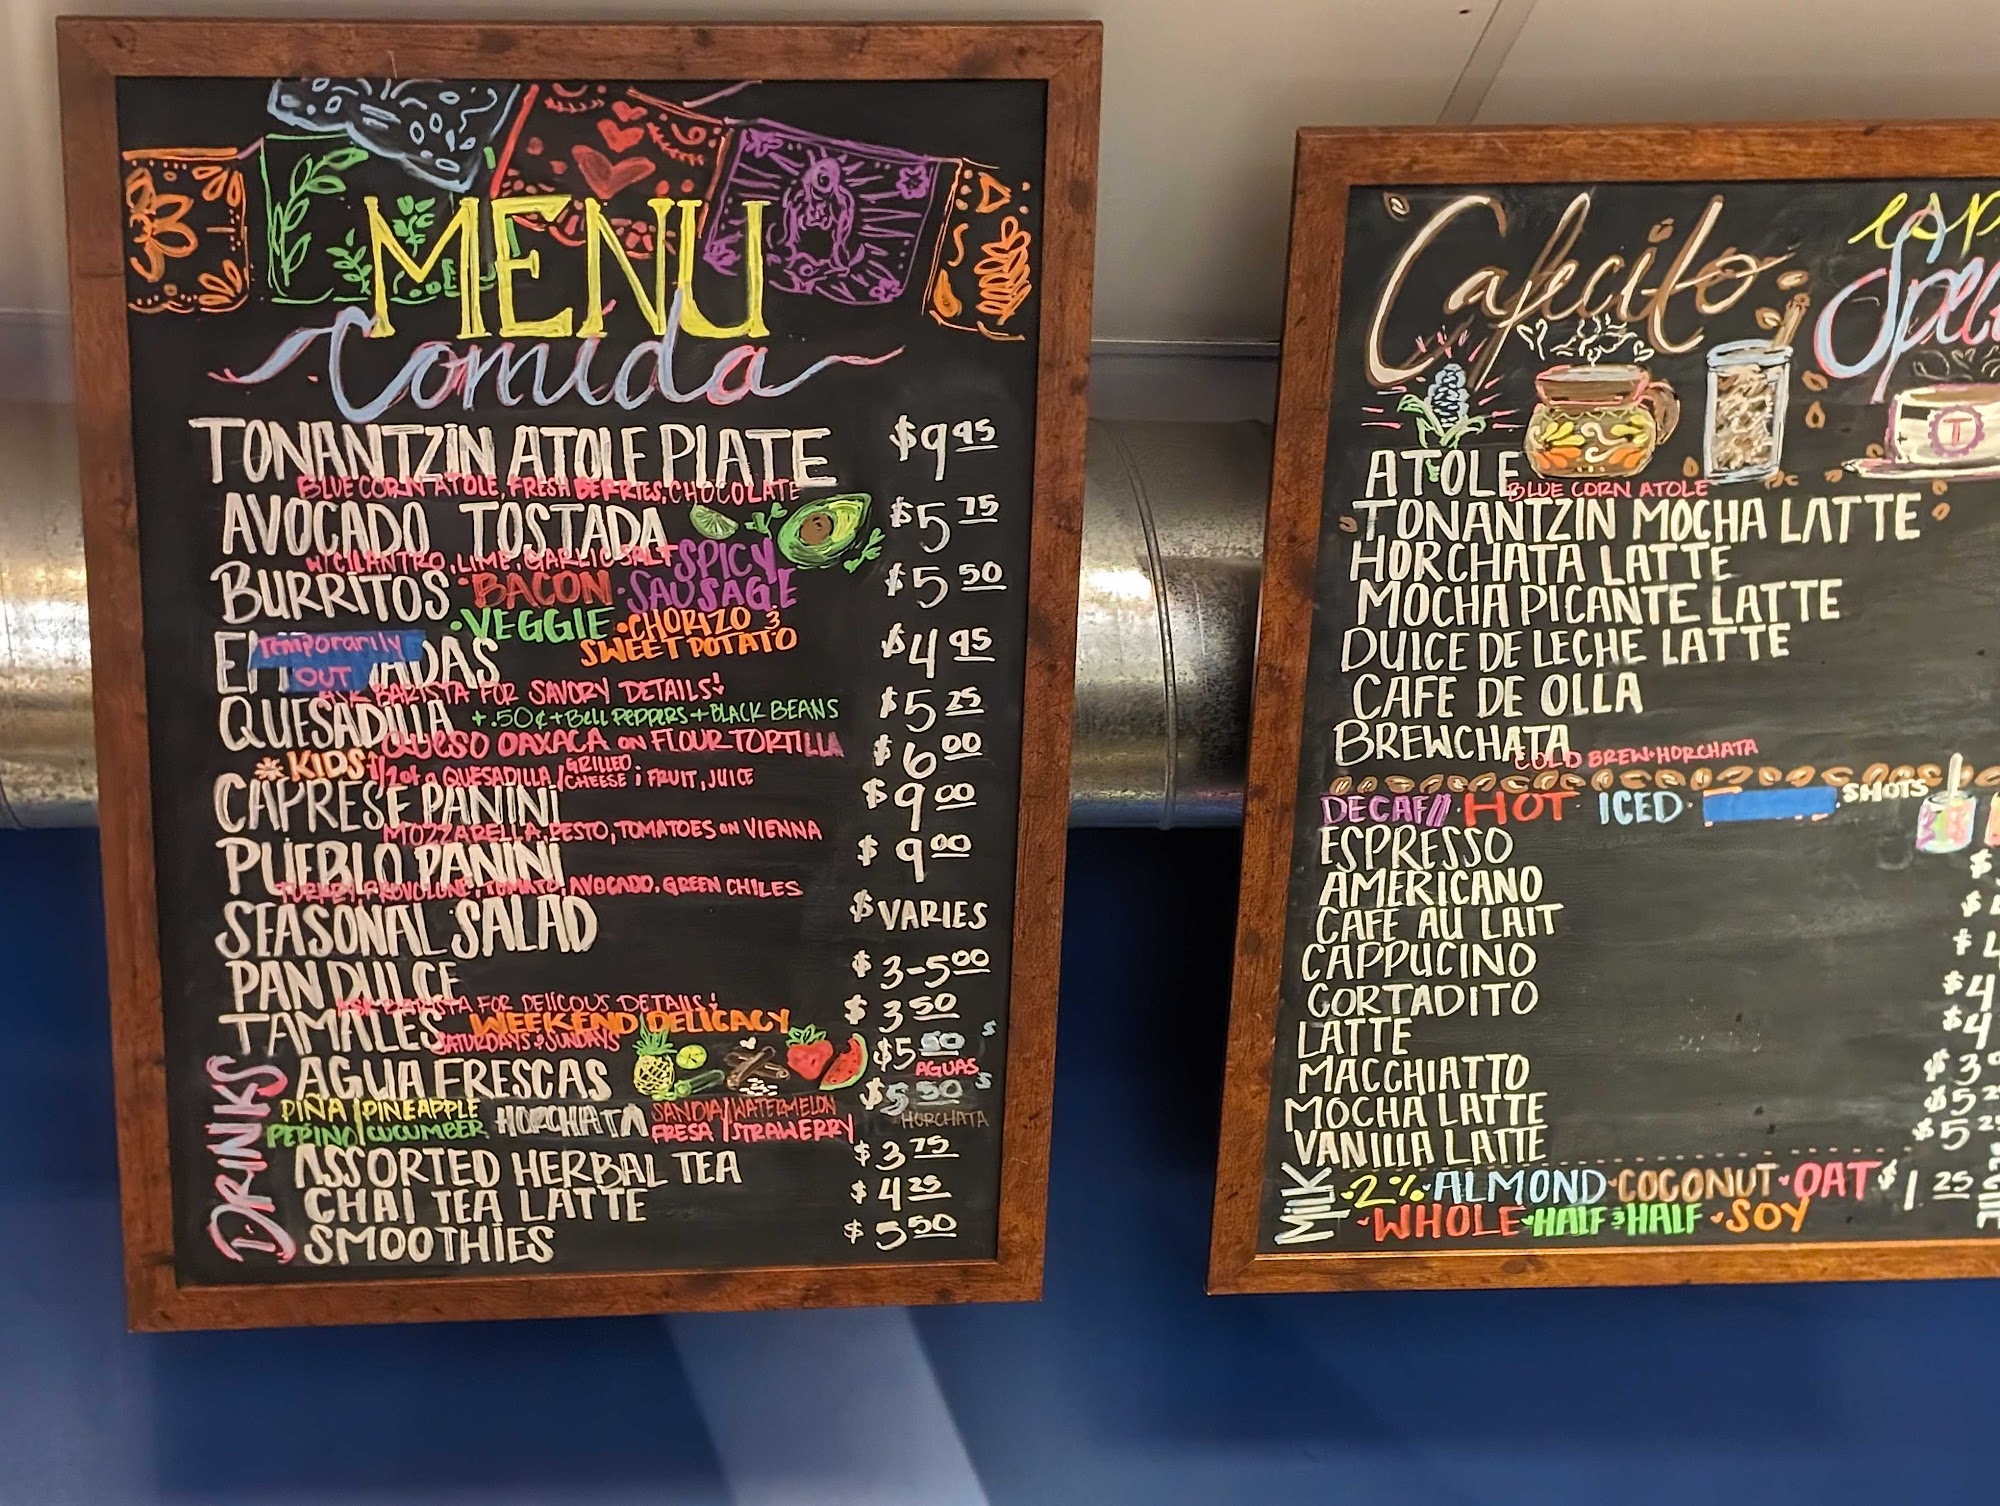 MENU
Comida
TONANTZIN ATOLE PLATE $9.95
BLUE CORN ATOLE, FRESH BERRIES, CHOCOLATE
AVOCADO TOSTADA $5.75
W/ CILANTRO, LIME, GARLIC SALT
BURRITOS • BACON • SPICY SAUSAGE $5.50
• VEGGIE • CHORIZO & SWEET POTATO
Temporarily OUT $4.95
ASK BARISTA FOR SAVORY DETAILS!
QUESADILLA + .50¢ + BELL PEPPERS + BLACK BEANS $5.25
QUESO OAXACA ON FLOUR TORTILLA
KIDS 1/2 of a QUESADILLA / GRILLED CHEESE; FRUIT, JUICE $6.00
CAPRESE PANINI $9.00
MOZZARELLA, PESTO, TOMATOES ON VIENNA
PUEBLO PANINI $9.00
TURKEY, PROVOLONE, TOMATO, AVOCADO, GREEN CHILES
SEASONAL SALAD $VARIES
PAN DULCE $3-5.00
ASK BARISTA FOR DELICOUS DETAILS!
TAMALES WEEKEND DELICACY $3.50
SATURDAYS & SUNDAYS
DRINKS
AGUA FRESCAS $5.50 AGUAS
$5.50 HORCHATA
PIÑA | PINEAPPLE HORCHATA SANDIA | WATERMELON
PEPINO | CUCUMBER FRESA | STRAWERRY
ASSORTED HERBAL TEA $3.75
CHAI TEA LATTE $4.25
SMOOTHIES $5.50
Cafecito
ATOLE
BLUE CORN ATOLE
TONANTZIN MOCHA LATTE
HORCHATA LATTE
MOCHA PICANTE LATTE
DULCE DE LECHE LATTE
CAFE DE OLLA
BREWCHATA
COLD BREW • HORCHATA
DECAF // • HOT ICED • SHOTS
ESPRESSO
AMERICANO
CAFE AU LAIT
CAPPUCINO
CORTADITO
LATTE
MACCHIATTO
MOCHA LATTE
VANILLA LATTE
MILK
2% ALMOND • COCONUT • OAT $1.25
WHOLE HALF & HALF SOY